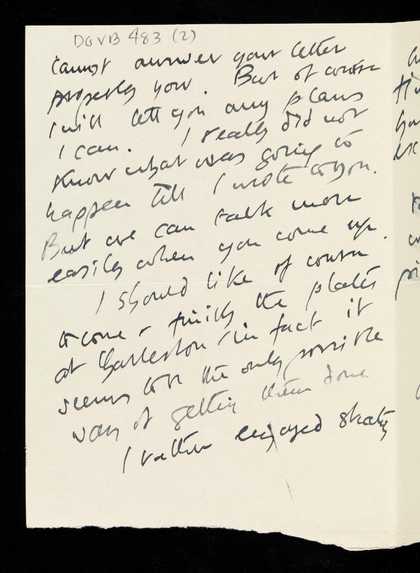 DGVB 483 (2)
Cannot answer your letter
properly now. But of course
I will tell you any plans
I can. I really did not
know what was going to
happen till I wrote to you.
But we can talk more
easily when you come up.
I should like of course
to come & finish the plates
at Charleston, in fact it
seems to be the only possible
way of getting them done
I rather enjoyed skating